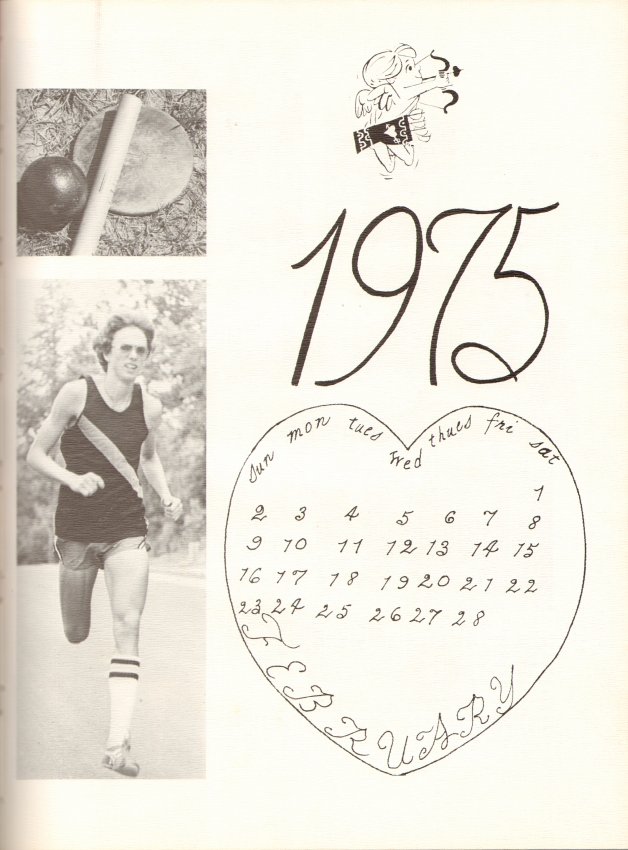 1975
sun mon tues wed thues fri sat
1
2 3 4 5 6 7 8
9 10 11 12 13 14 15
16 17 18 19 20 21 22
23 24 25 26 27 28
FEBRUARY